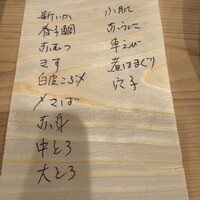 新いか
春子鯛
おひつ
きす
白皮こぶ〆
〆さば
赤身
中とろ
大とろ
小肌
あうに
車えび
煮はまぐり
穴子